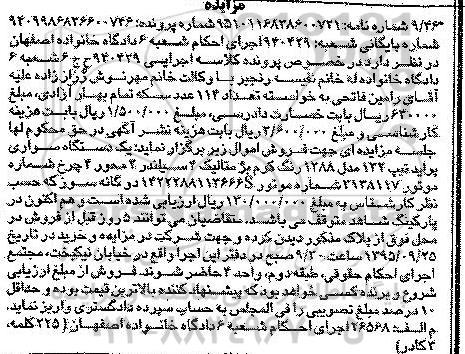 مزایده
۹/۴۶ شماره نامه: ۹۵۱۰۱۱۶۸۳۸۶۰۰۷۲۱ شماره پرونده: ۹۴۰۹۹۸۶۸۳۶۶۰۰۷۴۶
شماره بایگانی شعبه: ۹۴۰۴۲۹ اجرای احکام شعبه ۶ دادگاه خانواده اصفهان
در نظر دارد در خصوص پرونده کلاسه اجرایی ۹۴۰۴۲۹ ح ج ۶ شعبه ۶
دادگاه خانواده له خانم نفیسه رنجبر با وکالت خانم مهرنوش رزاز زاده علیه
آقای رامین فاتحی به خواسته تعداد ۱۱۴ عدد سکه تمام بهار آزادی، مبلغ
۶۳۰۰۰۰ ریال بابت خسارت دادرسی، مبلغ ۱/۵۰۰/۰۰۰ ریال بابت هزینه
کارشناسی و مبلغ ۲/۶۰۰/۰۰۰ ریال بابت هزینه نشر آگهی در حق محکوم لها
جلسه مزایده ای جهت فروش اموال زیر برگزار نماید: یک دستگاه سواری
پراید تیپ ۱۳۲ مدل ۱۳۸۸ رنگ کرم بژ متالیک ۴ سیلندر ۲ محور ۴ چرخ شماره
موتور ۲۹۳۸۱۱۷ شماره موتور S۱۴۲۲۲۸۸۱۱۳۶۶۶ دوگانه سوز که حسب
نظر کارشناس به مبلغ ۱۳۰/۰۰۰/۰۰۰ ریال ارزیابی شده است و هم اکنون در
پارکینگ شاهد متوقف می باشد. متقاضیان می توانند ۵ روز قبل از فروش در
محل فوق از پلاک مذکور دیدن کرده و جهت شرکت در مزایده و خرید در تاریخ
۱۳۹۵/۰۹/۲۵ ساعت ۹/۳۰ صبح در دفتر این اجرا واقع در خیابان نیکبخت، مجتمع
اجرای احکام حقوقی، طبقه دوم، واحد ۴ حاضر شوند. فروش از مبلغ ارزیابی
شروع و برنده کسی خواهد بود که پیشنهاد کننده بالاترین قیمت بوده و حداقل
۱۰ درصد مبلغ تصویبی را فی المجلس به حساب سپرده دادگستری واریز نماید.
م الف: ۲۶۵۶۸ اجرای احکام شعبه ۶ دادگاه خانواده اصفهان (۲۲۵ کلمه،
۳ کادر)